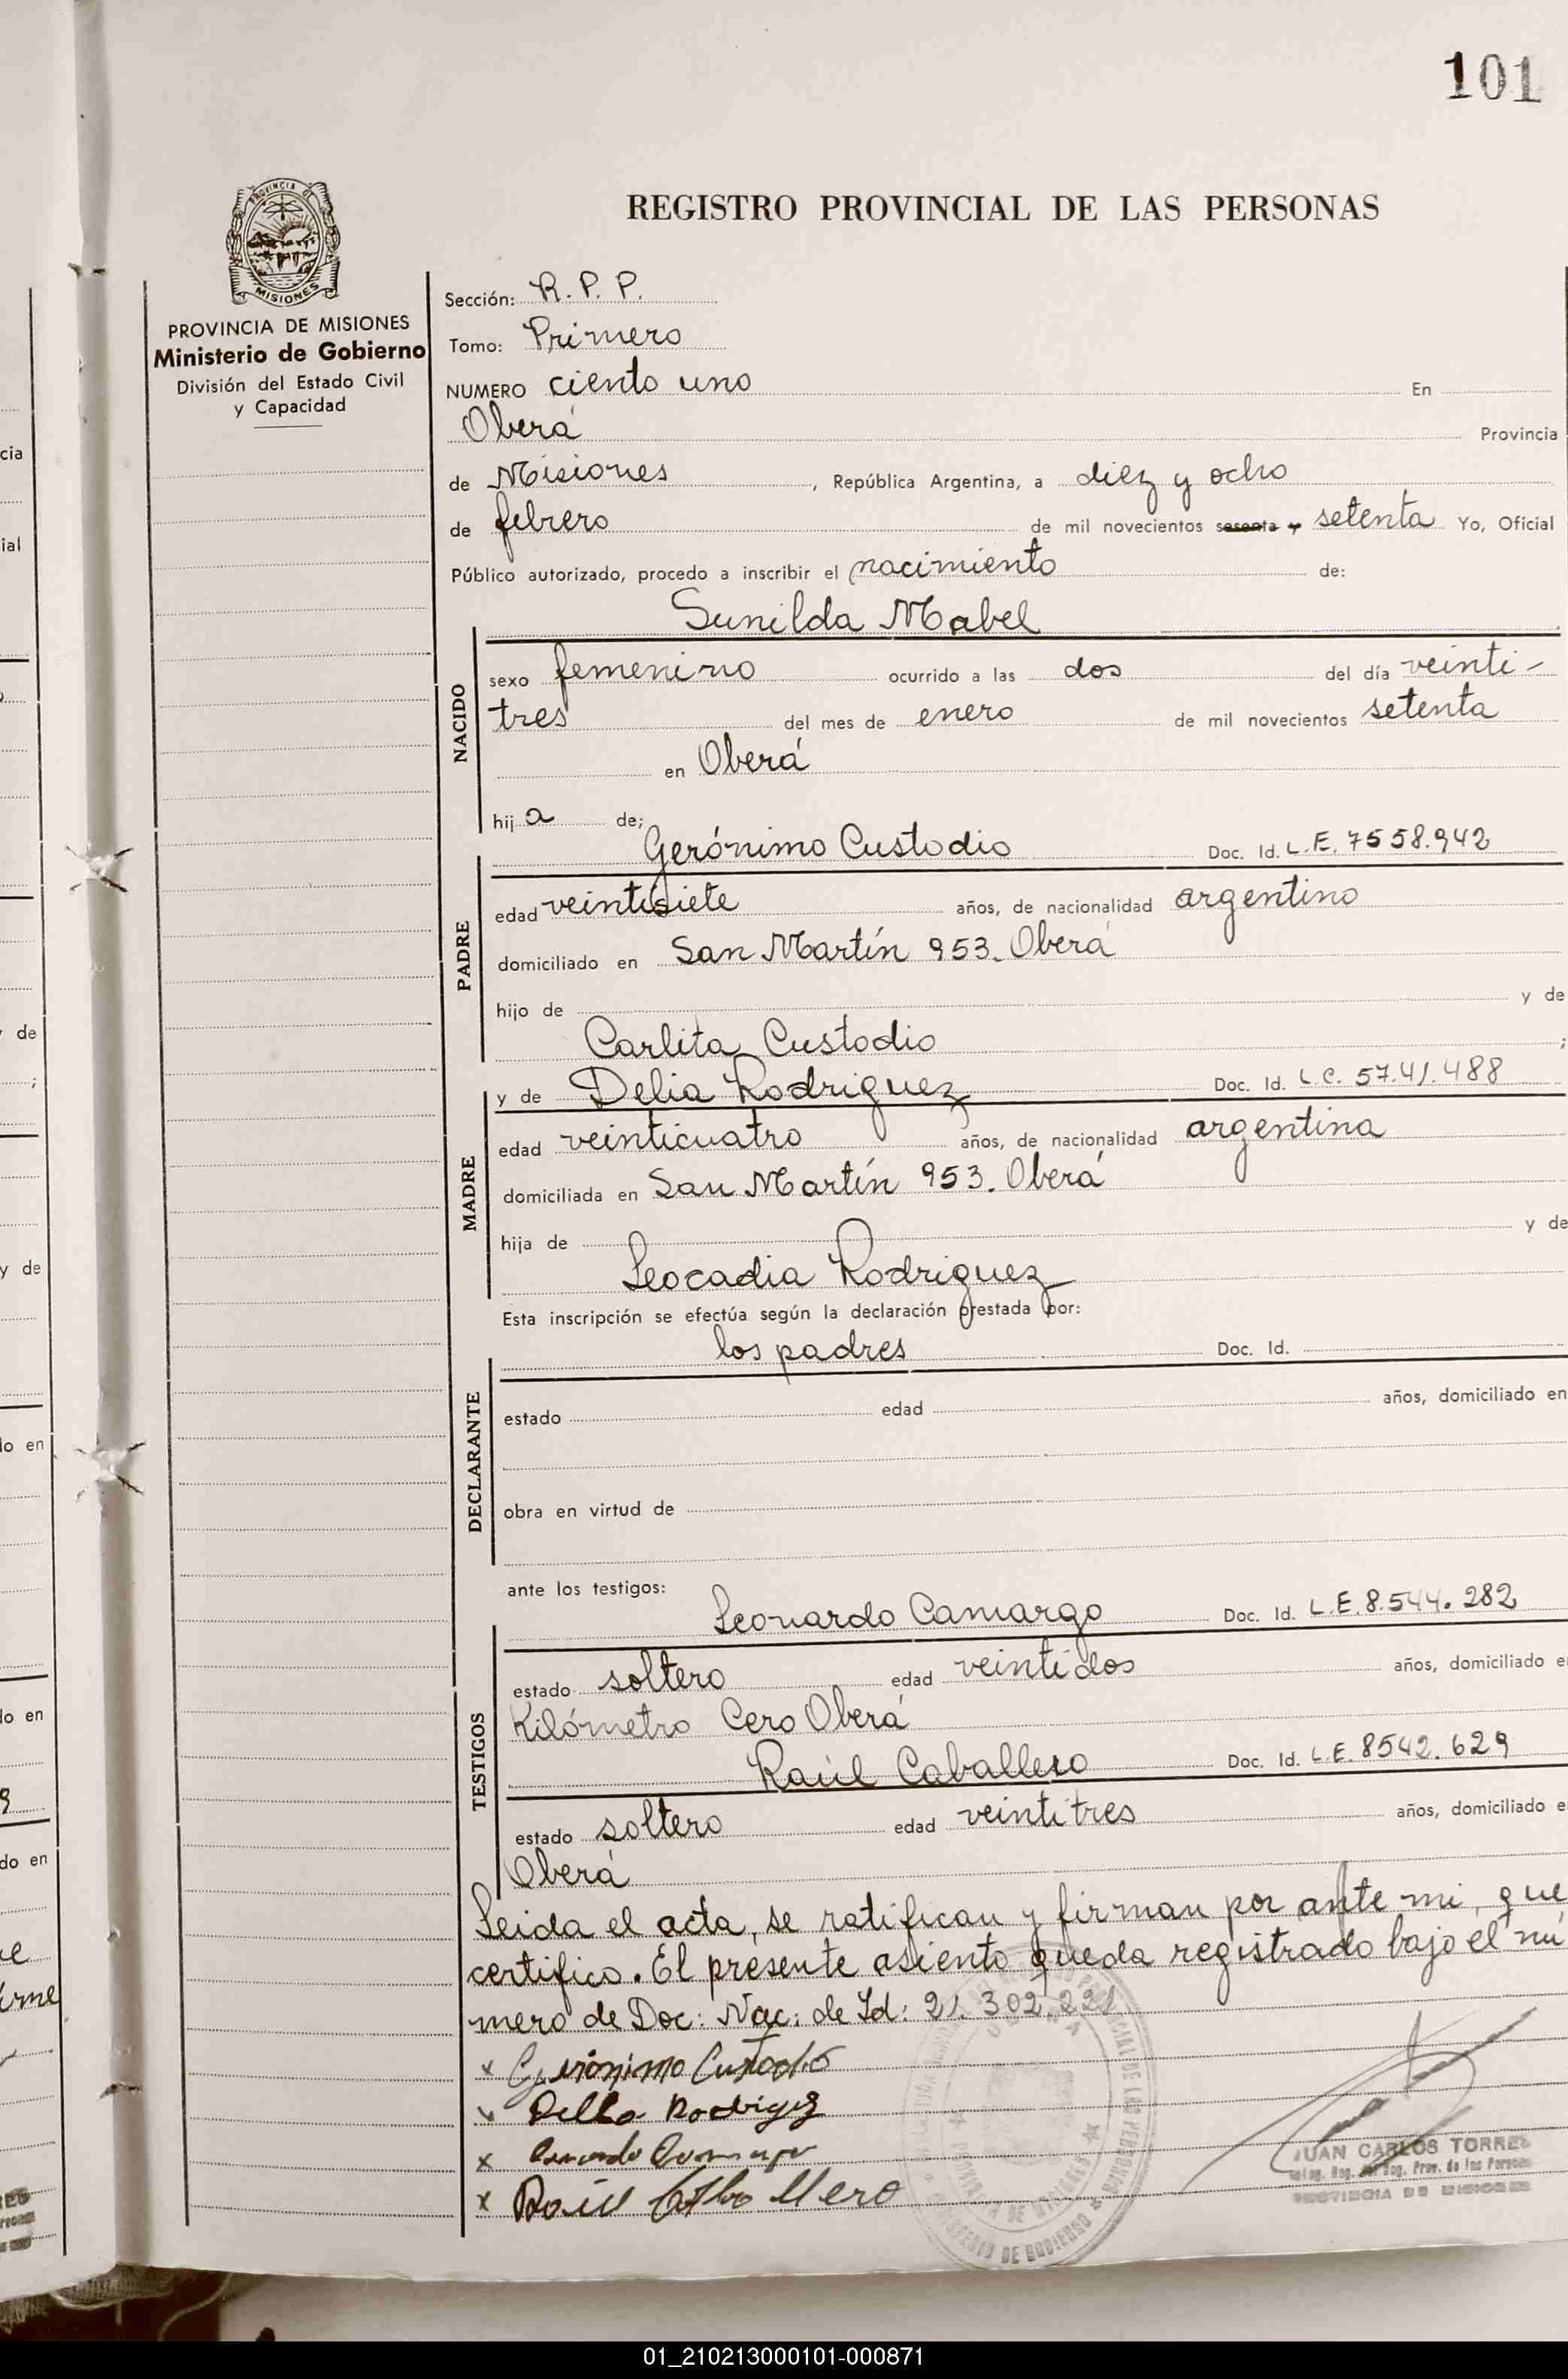 101
REGISTRO PROVINCIAL DE LAS PERSONAS
PROVINCIA DE
MISIONES
PROVINCIA DE MISIONES
Ministerio de Gobierno
División del Estado Civil
y Capacidad
Sección: R. P. P.
Tomo: Primero
NUMERO ciento uno En
Oberá Provincia
de Misiones, República Argentina, a diez y ocho
de febrero de mil novecientos sesenta y setenta Yo, Oficial
Público autorizado, procedo a inscribir el nacimiento de:
Sunilda Mabel
NACIDO
sexo femenino ocurrido a las dos del día veinti-
tres del mes de enero de mil novecientos setenta
en Oberá
hija de;
Gerónimo Custodio Doc. Id. L.E. 7558.942
PADRE
edad veintisiete años, de nacionalidad argentino
domiciliado en San Martín 953. Oberá
hijo de y de
Carlita Custodio ;
y de Delia Rodriguez Doc. Id. L.C. 57.41.488
MADRE
edad veinticuatro años, de nacionalidad argentina
domiciliada en San Martín 953. Oberá
hija de y de
Leocadia Rodriguez
Esta inscripción se efectúa según la declaración prestada por:
los padres Doc. Id.
DECLARANTE
estado edad años, domiciliado en
obra en virtud de
ante los testigos:
Leonardo Camargo Doc. Id. L.E. 8.544.282
TESTIGOS
estado soltero edad veintidos años, domiciliado e
Kilómetro Cero Oberá
Raúl Caballero Doc. Id. L.E. 8542.629
estado soltero edad veintitres años, domiciliado e
Oberá
Leida el acta, se ratifican y firman por ante mi, que
certifico. El presente asiento queda registrado bajo el nú
mero de Doc: Nac: de Id: 21.302.221
x Gerónimo Custodio
x Delia Rodriguez
x
x Raúl
JUAN CARLOS TORRES
Prov. de las Personas
PROVINCIA DE MISIONES
01_210213000101-000871